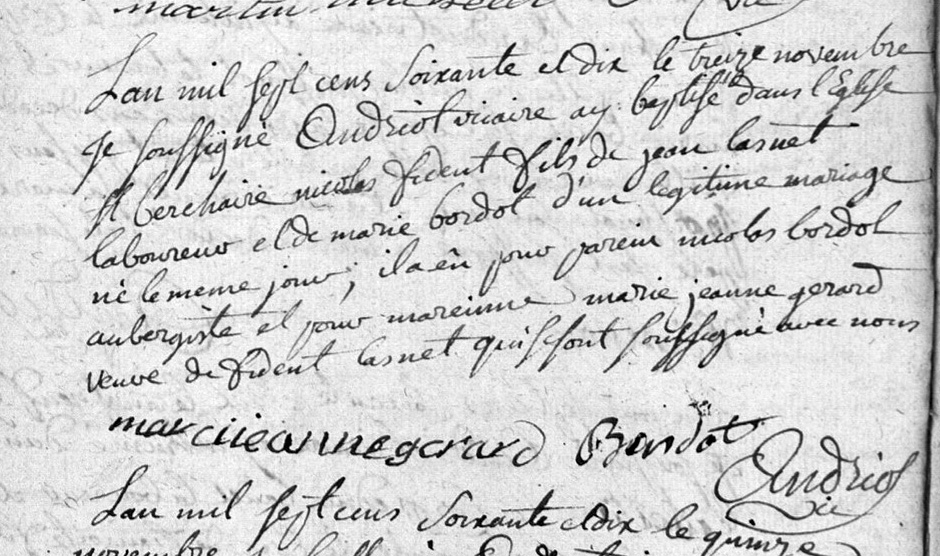 Lan mil sept cens soixante et dix le treize novembre
je soussigné Andriot vicaire ay baptisé dans l'Eglise
st berchaire nicolas fident fils de jean lasnet
laboureur et de marie bordot d'un legitime mariage
né le meme jour ; il a eû pour parein nicolas bordot
aubergiste et pour mareinne marie jeanne gerard
veuve de fident lasnet qui se sont soussigné avec nous
marciieanne gerard Bordot
Andriot
vic
Lan mil sept cens soixante et dix le quinze
novembre